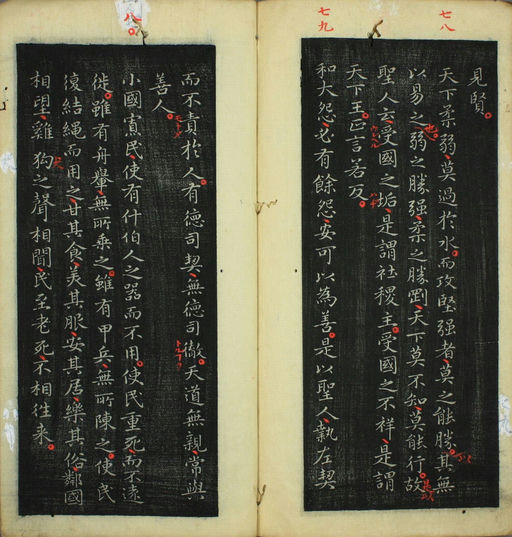 七八
見賢
天下柔弱莫過於水而攻堅强者莫之能勝其無
以易之弱之勝强柔之勝剛天下莫不知莫能行故
也
是以
聖人云受國之垢是謂社稷主受國之不祥是謂
天下王正言若反
七九
和大怨必有餘怨安可以為善是以聖人執左契
而不責於人有德司契無德司徹天道無親常與
善人
八〇
小國寡民使有什伯人之器而不用使民重死而不遠
徙雖有舟轝無所乘之雖有甲兵無所陳之使民
復結繩而用之甘其食美其服安其居樂其俗鄰國
相望雞狗之聲相聞民至老死不相往來
犬